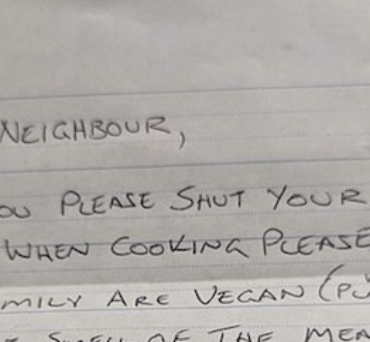 NEIGHBOUR,
OU PLEASE SHUT YOUR
WHEN COOKING PLEASE
MILY ARE VEGAN (PL
SMELL OF THE MEA